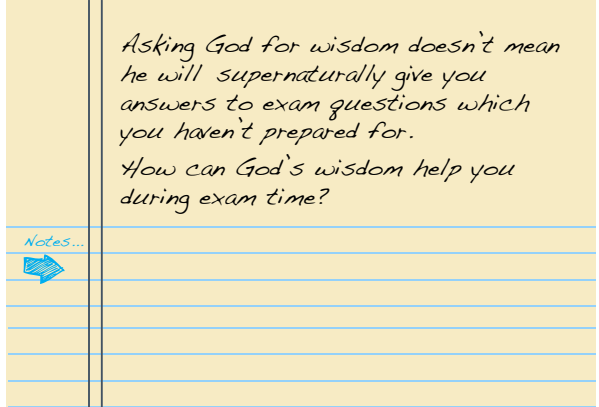 Asking God for wisdom doesn't mean
he will supernaturally give you
answers to exam questions which
you haven't prepared for.
How can God's wisdom help you
during exam time?
Notes...